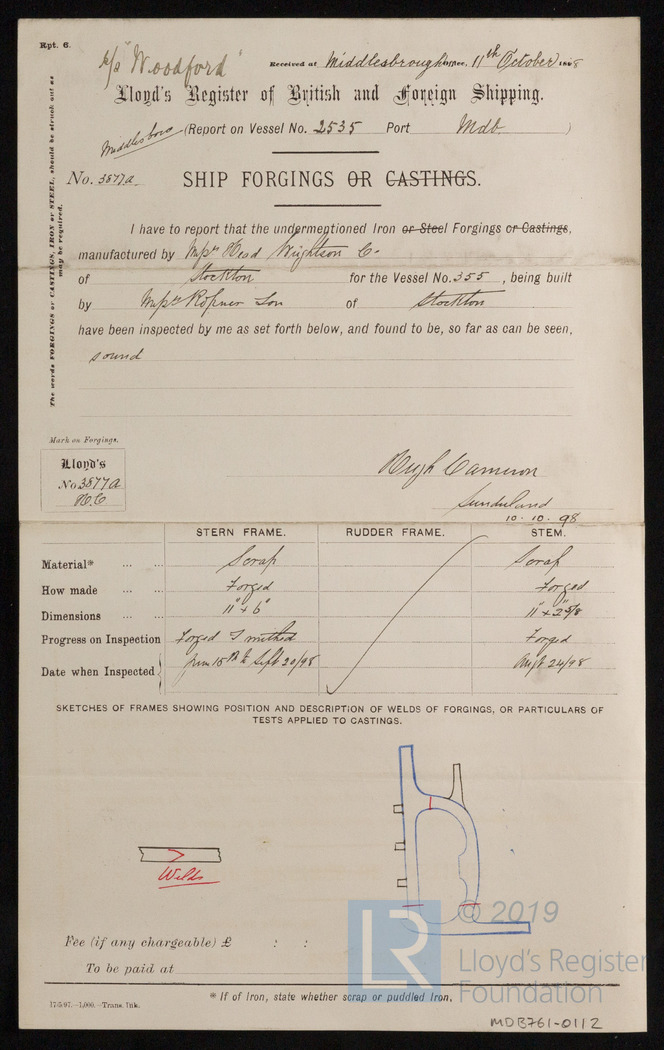 Rpt. 6.
s/s "Woodford"
Received at Middlesbrough Office, 11th October 1898
Lloyd's Register of British and Foreign Shipping.
Middlesboro (Report on Vessel No. 2535 Port Mdb )
No. 3877a. SHIP FORGINGS OR CASTINGS.
The words FORGINGS or CASTINGS, IRON or STEEL, should be struck out as
may be required.
I have to report that the undermentioned Iron or Steel Forgings or Castings,
manufactured by Messrs Head Wrightson Co
of Stockton for the Vessel No. 355, being built
by Messrs Ropner Son of Stockton
have been inspected by me as set forth below, and found to be, so far as can be seen,
sound
Mark on Forgings.
Lloyd's
No 3877a
H.C
Hugh Cameron
Sunderland
10. 10. 98
STERN FRAME. RUDDER FRAME. STEM.
Material* ... ... Scrap Scrap
How made ... ... Forged Forged
Dimensions ... ... 11" x 6" 11" x 2 5/8"
Progress on Inspection Forged Smithed Forged
Date when Inspected June 15th to Sept 20/98 Augt 24/98
SKETCHES OF FRAMES SHOWING POSITION AND DESCRIPTION OF WELDS OF FORGINGS, OR PARTICULARS OF
TESTS APPLIED TO CASTINGS.
Welds
Fee (if any chargeable) £ : :
To be paid at
* If of Iron, state whether scrap or puddled Iron,
17/5/97.—1,000.—Trans. Ink.
LR © 2019
Lloyd's Register
Foundation
MDB761-0112